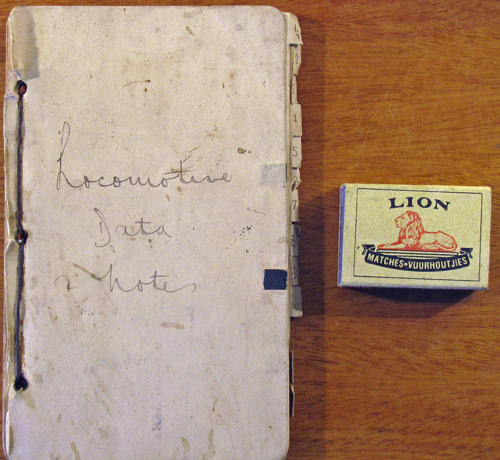 Locomotive
Data
& Notes
4
5
7
LION
MATCHES • VUURHOUTJIES